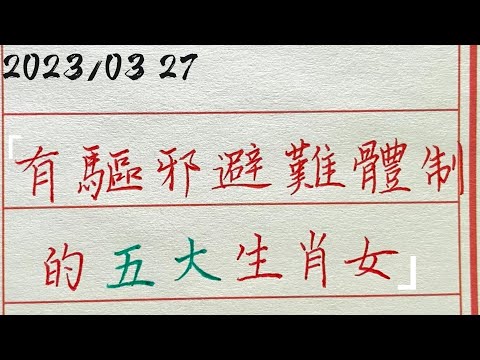 2023/03 27
「有驅邪避難體制
的五大生肖女」